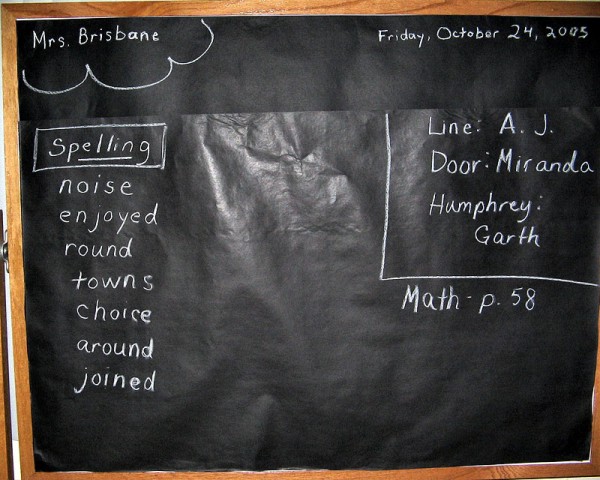 Mrs. Brisbane
Friday, October 24, 2005
Spelling
noise
enjoyed
round
towns
choice
around
joined
Line: A. J.
Door: Miranda
Humphrey:
Garth
Math - p. 58